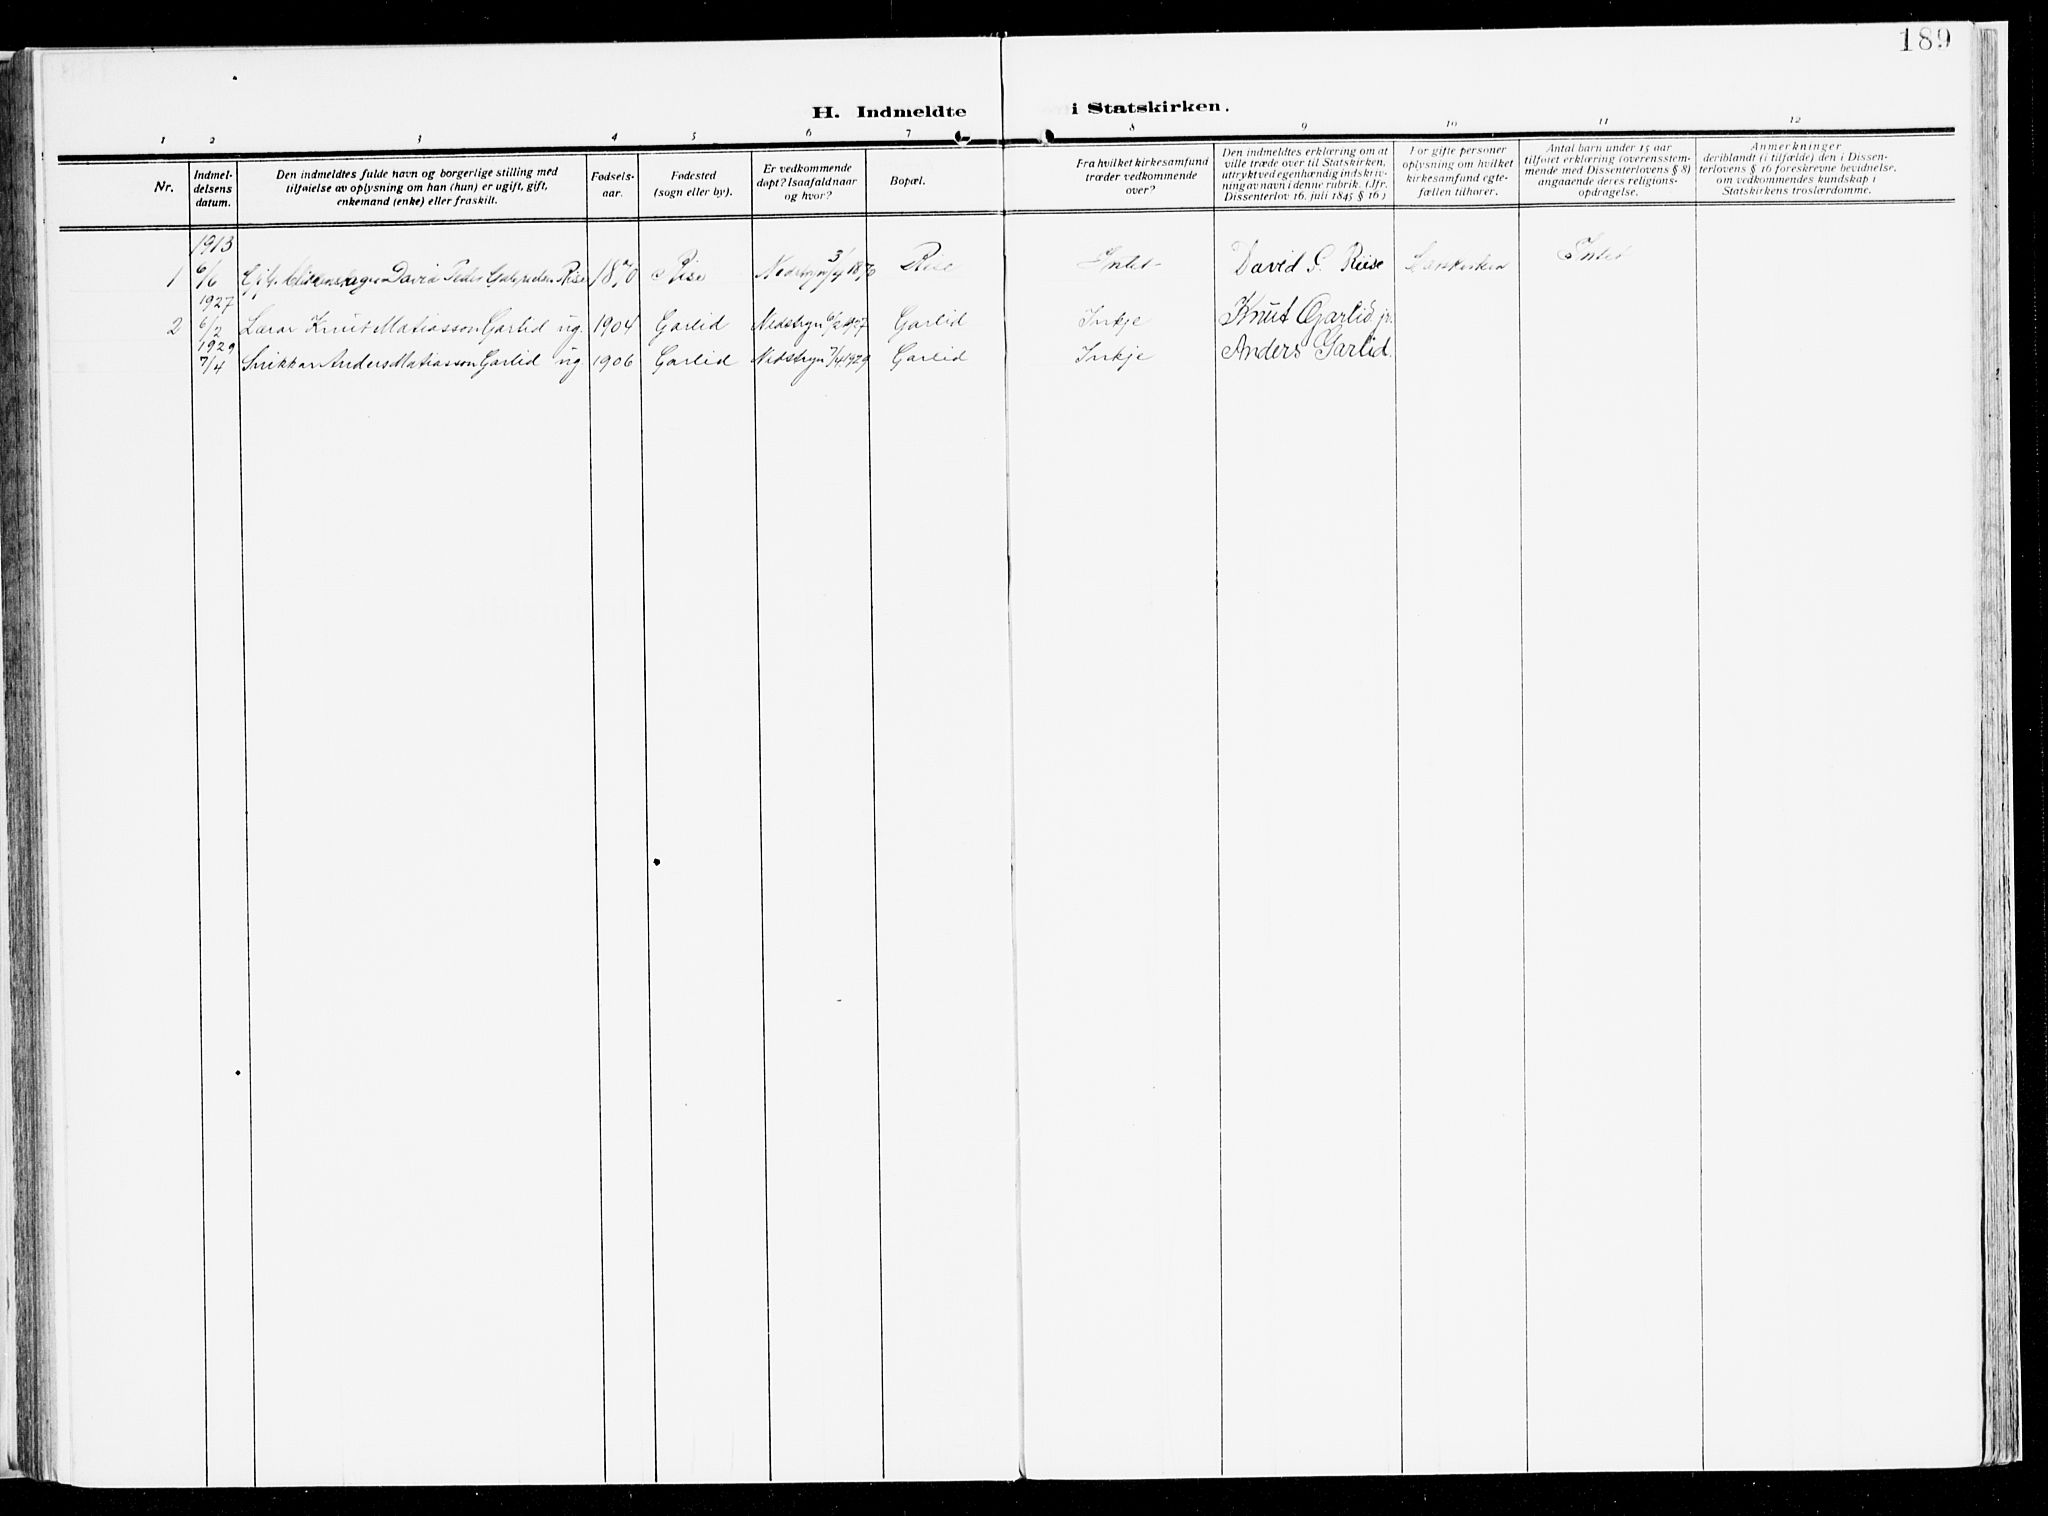 189
H. Indmeldte i Statskirken.
1 2 3 4 5 6 7 8 9 10 11 12
Nr.
Indmel-
delsens
datum.
Den indmeldtes fulde navn og borgerlige stilling med
tilføielse av oplysning om han (hun) er ugift, gift,
enkemand (enke) eller fraskilt.
Fødsels-
aar.
Fødested
(sogn eller by).
Er vedkommende
døpt? Isaafald naar
og hvor?
Bopæl.
Fra hvilket kirkesamfund
træder vedkommende
over?
Den indmeldtes erklæring om at
ville træde over til Statskirken,
uttrykt ved egenhændig indskriv-
ning av navn i denne rubrik. (Jfr.
Dissenterlov 16. juli 1845 § 16.)
For gifte personer
oplysning om hvilket
kirkesamfund egte-
fællen tilhører.
Antal barn under 15 aar
tilføiet erklæring (overensstem-
mende med Dissenterlovens § 8)
angaaende deres religions-
opdragelse.
Anmerkninger
deriblandt (i tilfælde) den i Dissen-
terlovens § 16 foreskrevne bevidnelse,
om vedkommendes kundskap i
Statskirkens troslærdomme.
1913
1 6/6 Gift David Peder Gabrielsen Riise 1870 Riise Nedstryn 3/4 1870 Riise Intet David G. Riise Intet
1927
2 6/2 Lærar Knut Matiasson Garlid ug. 1904 Garlid Nedstryn 6/2 1927 Garlid Inkje Knut Garlid jr.
1929
7/4 Snikkar Anders Matiasson Garlid ug 1906 Garlid Nedstryn 7/4 1929 Garlid Inkje Anders Garlid.